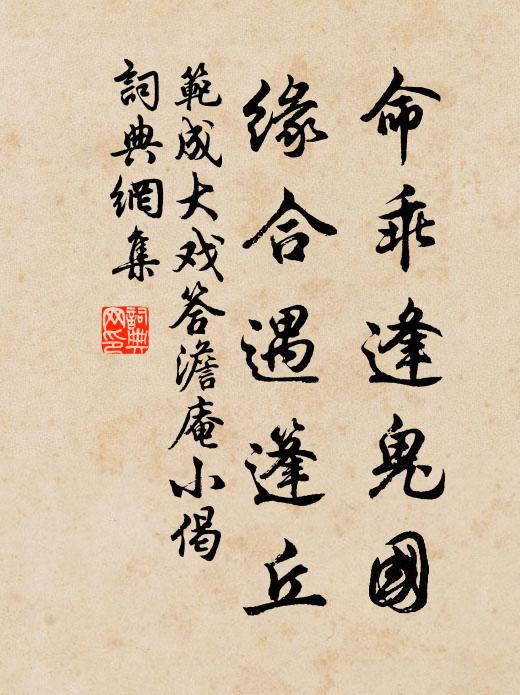 命乖逢鬼國
緣合遇蓬丘
範成大戏答澹庵小偈
詞典網集
詞典网印